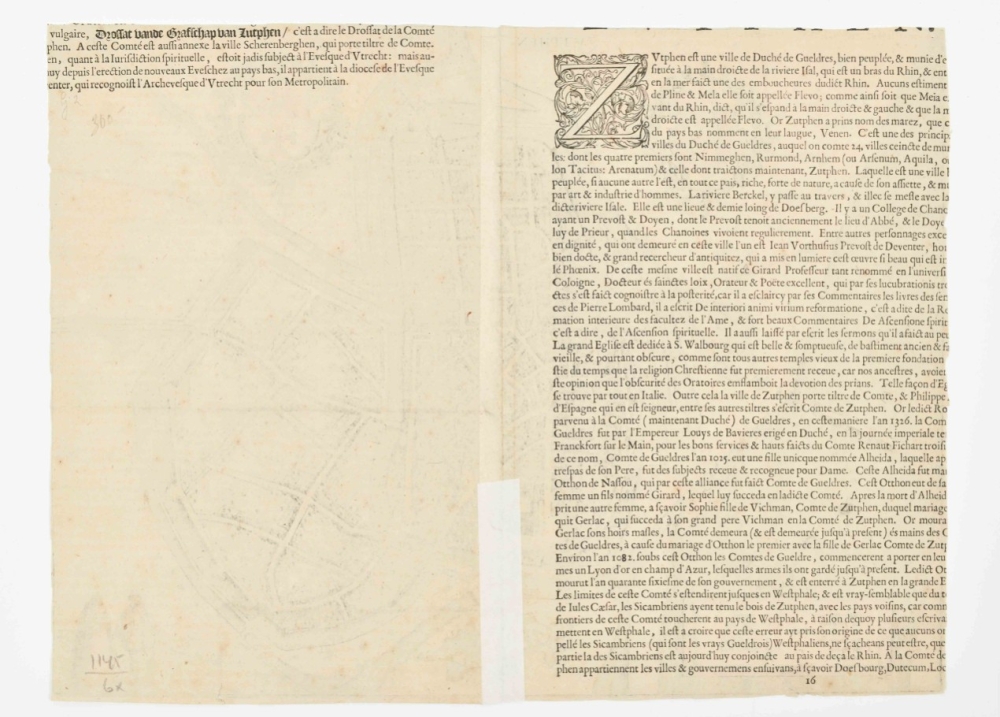 vulgaire, Drossat vande Grafschap van Zutphen / c'est a dire le Drossat de la Comté
phen. A ceste Comté est aussi annexe la ville Scherenberghen, qui porte tiltre de Comte.
en, quant à la Iurisdiction spirituelle, estoit jadis subject à l'Evesque d'Vtrecht: mais au-
uy depuis l'erection de nouveaux Eveschez au pays bas, il appartient à la diocese de l'Evesque
venter, qui recognoist l'Archevesque d'Vtrecht pour son Metropolitain.
ZVtphen est une ville de Duché de Gueldres, bien peuplée, & munie d'e
située à la main droicte de la riviere Isal, qui est un bras du Rhin, & ent
en la mer faict une des emboucheures dudict Rhin. Aucuns estiment
de Pline & Mela elle soit appellée Flevo; comme ainsi soit que Mela e
vant du Rhin, dict, qu'il s'espand à la main droicte & gauche & que la m
droicte est appellée Flevo. Or Zutphen a prins nom des marez, que c
du pays bas nomment en leur laugue, Venen. C'est une des princip
villes du Duché de Gueldres, auquel on comte 24. villes ceincte de mur
les: dont les quatre premiers sont Nimmeghen, Rurmond, Arnhem (ou Arsenum, Aquila, o
lon Tacitus: Arenatum) & celle dont traictons maintenant, Zutphen. Laquelle est une ville b
peuplée, si aucune autre l'est, en tout ce pais, riche, forte de nature, a cause de son assiette, & mu
par art & industrie d'hommes. La riviere Berckel, y passe au travers, & illec se mesle avec la
dicte riviere Isale. Elle est une lieue & demie loing de Doesberg. Il y a un College de Chanc
ayant un Prevost & Doyen, dont le Prevost tenoit anciennement le lieu d'Abbé, & le Doye
luy de Prieur, quand les Chanoines vivoient regulierement. Entre autres personnages exce
en dignité, qui ont demeuré en ceste ville l'un est Iean Vorthusius Prevost de Deventer, ho
bien docte, & grand recercheur d'antiquitez, qui a mis en lumiere cest œuvre si beau qui est in
lé Phœnix. De ceste mesme ville est natif ce Girard Professeur tant renommé en l'universi
Cologne, Docteur és sainctes loix, Orateur & Poete excellent, qui par ses lucubrations tre
ctes s'est faict cognoistre à la posterité, car il a esclaircy par ses Commentaires les livres des sen
ces de Pierre Lombard, il a escrit De interiori animi virium reformatione, c'est a dite de la Re
mation interieure des facultez de l'Ame, & fort beaux Commentaires De Ascensione spirit
c'est a dire, de l'Ascension spirituelle. Il a aussi laissé par escrit les sermons qu'il a faict au peu
La grand Eglise est dediée à S. Walbourg qui est belle & somptueuse, de bastiment ancien & fa
vieille, & pourtant obscure, comme sont tous autres temples vieux de la premiere fondation
stie du temps que la religion Chrestienne fut premierement receue, car nos ancestres, avoien
ste opinion que l'obscurité des Oratoires emflamboit la devotion des prians. Telle façon d'Eg
se trouve par tout en Italie. Outre cela la ville de Zutphen porte tiltre de Comte, & Philippe
d'Espagne qui en est seigneur, entre ses autres tiltres s'escrit Comte de Zutphen. Or ledict Ro
parvenu à la Comté (maintenant Duché) de Gueldres, en ceste maniere l'an 1326. la Com
Gueldres fut par l'Empereur Louys de Bavieres erigé en Duché, en la journée imperiale te
Franckfort sur le Main, pour les bons services & hauts faicts du Comte Renaut. Fichart troisi
de ce nom, Comte de Gueldres l'an 1025. eut une fille unicque nommée Alheida, laquelle ap
trespas de son Pere, fut des subjects receue & recogneue pour Dame. Ceste Alheida fut ma
Otthon de Nassou, qui par ceste alliance fut faict Comte de Gueldres. Cest Otthon eut de sa
femme un fils nommé Girard, lequel luy succeda en ladicte Comté. Apres la mort d'Alheid
prit une autre femme, a sçavoir Sophie fille de Vichman, Comte de Zutphen, duquel mariage
quit Gerlac, qui succeda à son grand pere Vichman en la Comté de Zutphen. Or moura
Gerlac sons hoirs masles, la Comté demeura (& est demeurée jusqu'à present) és mains des C
tes de Gueldres, à cause du mariage d'Otthon le premier avec la fille de Gerlac Comte de Zutp
Environ l'an 1082. soubs cest Otthon les Comtes de Gueldre, commencerent a porter en leu
mes un Lyon d'or en champ d'Azur, lesquelles armes ils ont gardé jusqu'à present. Ledict Ot
mourut l'an quarante sixiesme de son gouvernement, & est enterré à Zutphen en la grande E
Les limites de ceste Comté s'estendirent jusques en Westphale; & est vray-semblable que du t
de Iules Cæsar, les Sicambriens ayent tenu le bois de Zutphen, avec les pays voisins, car comm
frontiers de ceste Comté toucherent au pays de Westphale, à raison dequoy plusieurs escriva
mettent en Westphale, il est a croire que ceste erreur ayt pris son origine de ce que aucuns on
pellé les Sicambriens (qui sont les vrays Gueldrois) Westphaliens, ne sçacheans peut estre, que
partie la des Sicambriens est aujourd'huy conjoincte au pais de deça le Rhin. A la Comté de
phen appartiennent les villes & gouvernemens ensuivans, à sçavoir Doesbourg, Dutecum, Loc
16
1145
6x